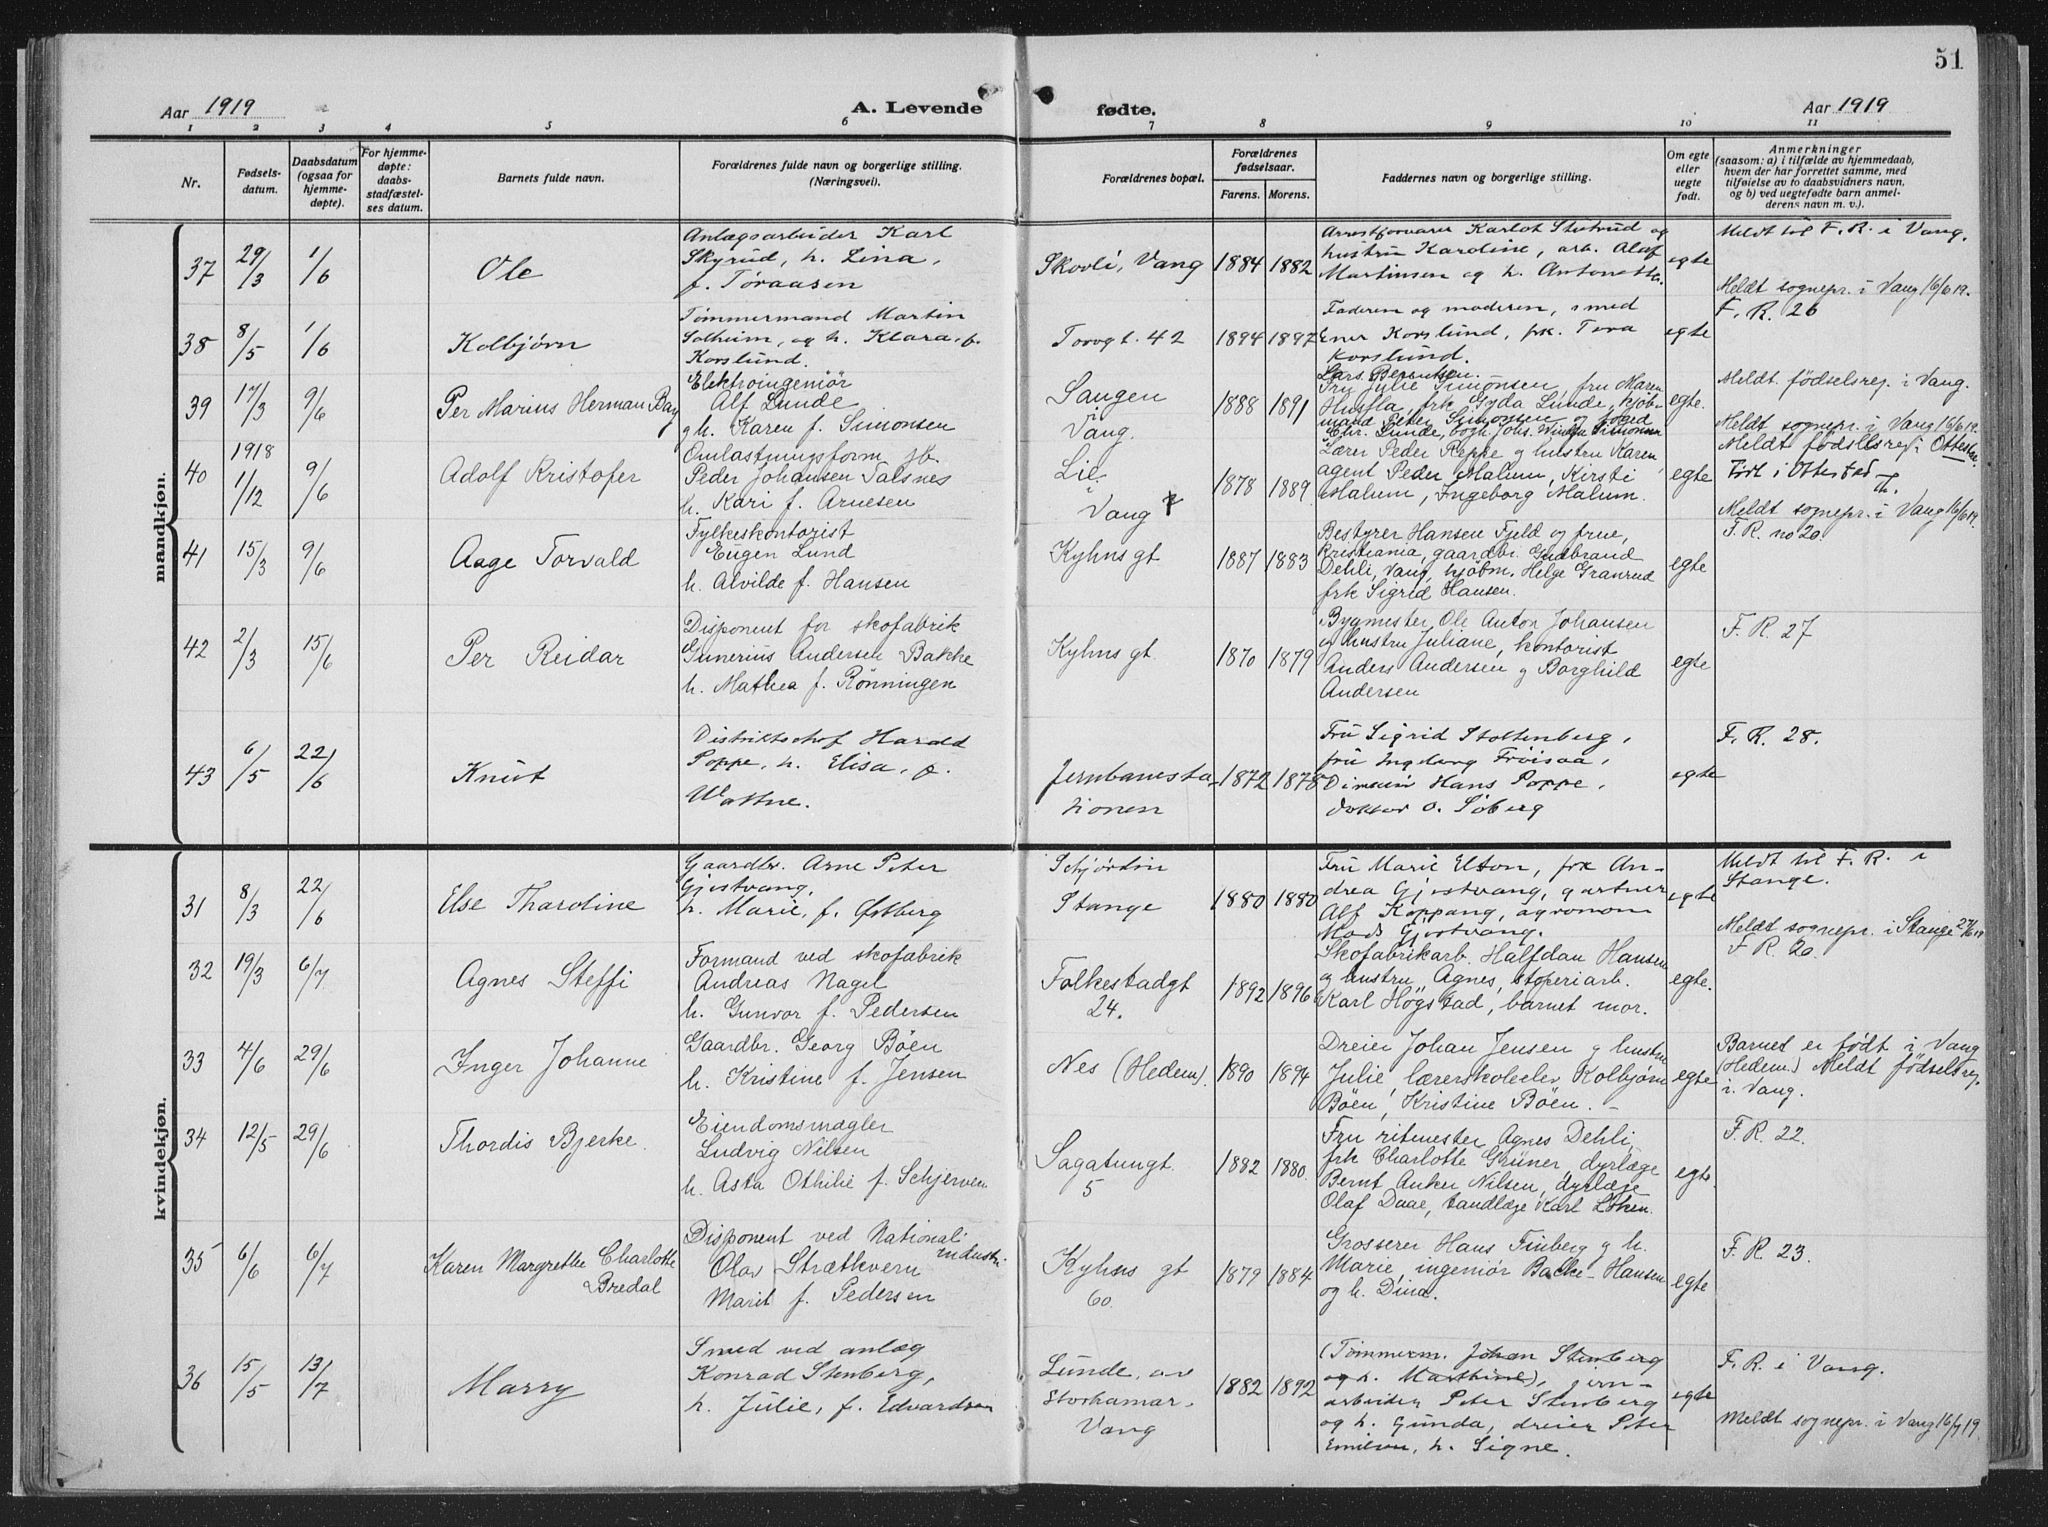 51
Aar 1919
A. Levende fødte.
Aar 1919
1 2 3 4 5 6 7 8 9 10 11
Nr.
Fødsels-
datum.
Daabsdatum
(ogsaa for
hjemme-
døpte).
For hjemme-
døpte:
daabs-
stadfæstel-
ses datum.
Barnets fulde navn.
Forældrenes fulde navn og borgerlige stilling.
(Næringsvei).
Forældrenes bopæl.
Forældrenes
fødselsaar.
Farens. Morens.
Faddernes navn og borgerlige stilling.
Om egte
eller
uegte
født.
Anmerkninger
(saasom: a) i tilfælde av hjemmedaab,
hvem der har forrettet samme, med
tilføielse av to daabsvidners navn,
og b) ved uegtefødte barn anmel-
derens navn m. v.).
mandkjøn.
37
29/3
1/6
Ole
Anlægsarbeider Karl
Skyrud, h. Lina,
f. Toraasen
Skovli, Vang
1884
1882
Karlot Stutrud og
hustru Karoline, arb. Olaf
Martinsen og h. Antonette.
egte
Meldt til F. R. i Vang.
Meldt sognepr. i Vang 16/6 19.
38
8/5
1/6
Kolbjørn
Tømmermand Martin
Solheim, og h. Klara, f.
Korslund.
Torvgt. 42
1894
1897
Faderen og moderen, smed
Ener Korslund, frk. Tora
Korslund.
egte
F. R. 26
39
17/3
9/6
Per Marius Herman Bay
Elektroingeniør
Alf Lunde
g h. Karen f. Simonsen
Sangen
i
Vang.
1888
1891
Lars Berentsen.
Fru Julie Simonsen, fru Maren
Husfla, frk Gyda Lunde, kjøb-
mand Peter Simonsen og
Chr. Lunde, bogh. Johs.
egte.
Meldt fødselsrej. i Vang.
Meldt sognepr. i Vang 16/6 19.
40
1918
1/12
9/6
Adolf Kristofer
Omlastningsform. jb.
Peder Johansen Valsnes
h. Kari f. Arnesen
Lie
i
Vang
1878
1889
Lærer Peder Reppe og hustru Karen,
agent Peder Malum, Kirsti
Malum, Ingeborg Malum.
egte
Meldt fødselsrej. i Ottestad.
Født i Ottestad
Meldt sognepr. i Vang 16/6 19.
41
15/3
9/6
Aage Torvald
Fylkeskontorist
Eugen Lund
h. Alvilde f. Hansen
Kyhns gt
1887
1883
Bestyrer Hansen Fjeld og frue,
Kristiania, gaardbr. Gudbrand
Dehli, Vang, kjøbm. Helge Granrud
frk Sigrid Hansen.
egte
F. R. no 20
42
2/3
15/6
Per Reidar
Disponent for skofabrik
Gunerius Andersen Bakke
h. Mathea f. Rønningen
Kyhns gt.
1870
1879
Bygmester Ole Anton Johansen
g hustru Juliane, kontorist
Anders Andersen g Borghild
Andersen
egte
F. R. 27
43
6/5
22/6
Knut
Distriktschef Harald
Poppe, h. Elisa, f.
Wattne.
Jernbanesta-
tionen
1872
1878
Fru Sigrid Stoltenberg,
fru Ingeborg Fröisaa,
Hans Poppe,
doktor O. Söberg
egte
F. R. 28.
kvindekjøn.
31
8/3
22/6
Else Tharoline
Gaardbr. Arne Peter
Gjestvang,
h. Marie, f. Østberg
Stange
1880
1880
Fru Marie Elton, frk An-
drea Gjestvang, gartner
Alf Koppang, agronom
Mads Gjestvang.
egte
Meldt til F. R. i
Stange.
Meldt sognepr. i Stange 27/6 19
32
19/3
6/7
Agnes Steffi
Formand ved skofabrik
Andreas Nagel
h. Gunvor f. Pedersen
Folkestadgt
24.
1892
1896
Skofabrikarb. Halfdan Hansen
g hustru Agnes, stoperiarb.
Karl Høgstad, barnet mor.
egte.
F. R. 20.
33
4/6
29/6
Inger Johanne
Gaardbr. Georg Böen
h. Kristine f. Jensen
Nes (Hedem).
1890
1894
Dreier Johan Jensen g hustru
Julie, lærerskoleelev Kolbjørn
Böen, Kristine Böen. -
egte
Barnet er født i Vang
(Hedem.) Meldt fødselsrej.
i Vang.
34
12/5
29/6
Thordis Bjerke
Eiendomsmægler
Ludvig Nilsen
h. Asta Othilie f. Schjerven
Sagatungt.
5
1882
1880.
Fru ritmester Agnes Dehli,
frk Charlotte Grüner, dyrlæge
Bernt Anker Nilsen, dyrlæge
Olaf Daae, tandlæge Karl Löken.
egte.
F. R. 22.
35
6/6
6/7
Karen Margrethe Charlotte
Bredal
Disponent ved National
industri
Olav Strætkvern
Marit f. Pedersen
Kyhns gt
60.
1879
1884
Grosserer Hans Finberg g h.
Marie, ingeniør Backe-Hansen
og h. Dina.
egte
F. R. 23.
36
15/5
13/7
Marry
Smed ved anlæg
Konrad Stenberg,
h. Julie, f. Edvardsen
Lunde, av
Storhamar.
Vang
1882
1892
(Tømmerm. Johan Stenberg
og h. Marthine), jern-
arbeider Peter Stenberg
og h. Gunda, dreier Peter
Emilsen, h. Signe.
egte
F. R. i Vang.
Meldt sognepr. i Vang 16/7 19.